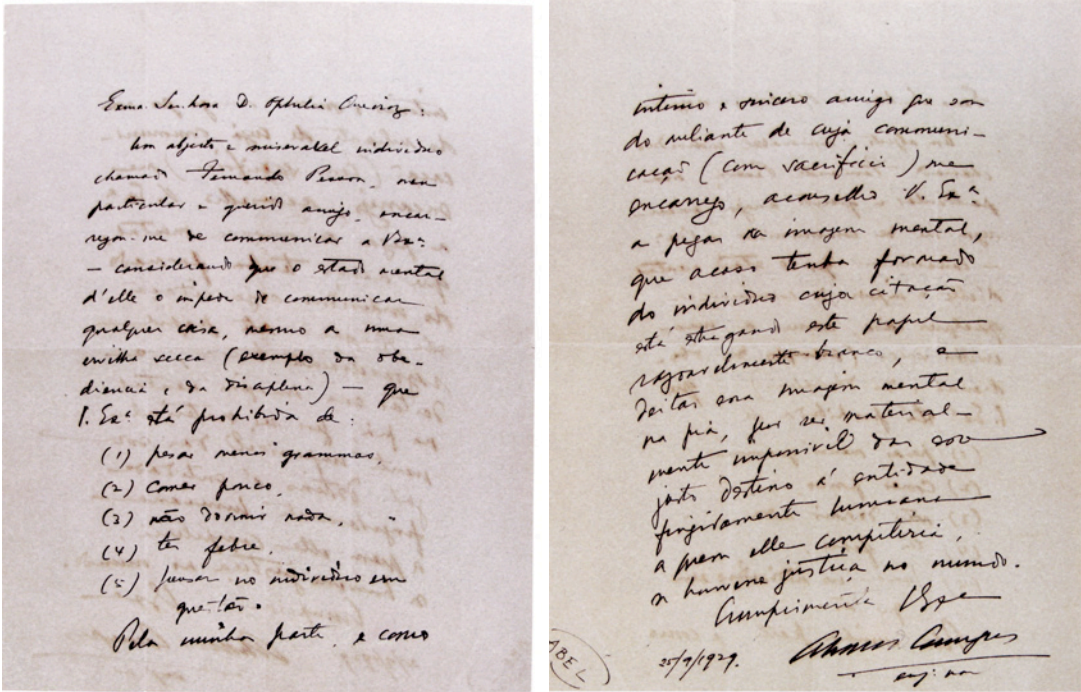 Exma. Senhora D. Ophelia Queiroz:
Um abjecto e miseravel individuo
chamado Fernando Pessoa, meu
particular e querido amigo, encar-
regou-me de communicar a V. Ex.ª
— considerando que o estado mental
d'elle o impede de communicar
qualquer coisa, mesmo a uma
ervilha secca (exemplo da obe-
diencia e da disciplina) — que
V. Ex.ª está prohibida de:
(1) pesar menos grammas,
(2) comer pouco,
(3) não dormir nada,
(4) ter febre,
(5) pensar no individuo em
questão.
Pela minha parte, e como
intimo e sincero amigo que sou
do meliante de cuja communi-
cação (com sacrificio) me
encarrego, aconselho V. Ex.ª
a pegar na imagem mental,
que acaso tenha formado
do individuo cuja citação
está estragando este papel
razoavelmente branco, e
deitar essa imagem mental
na pia, por ser material-
mente impossivel dar esse
justo destino á entidade
fingidamente humana
a quem elle competiria,
se houvesse justiça no mundo.
Cumprimenta V. Ex.ª
Alvaro de Campos
eng. naval
25/9/1929.
ABEL